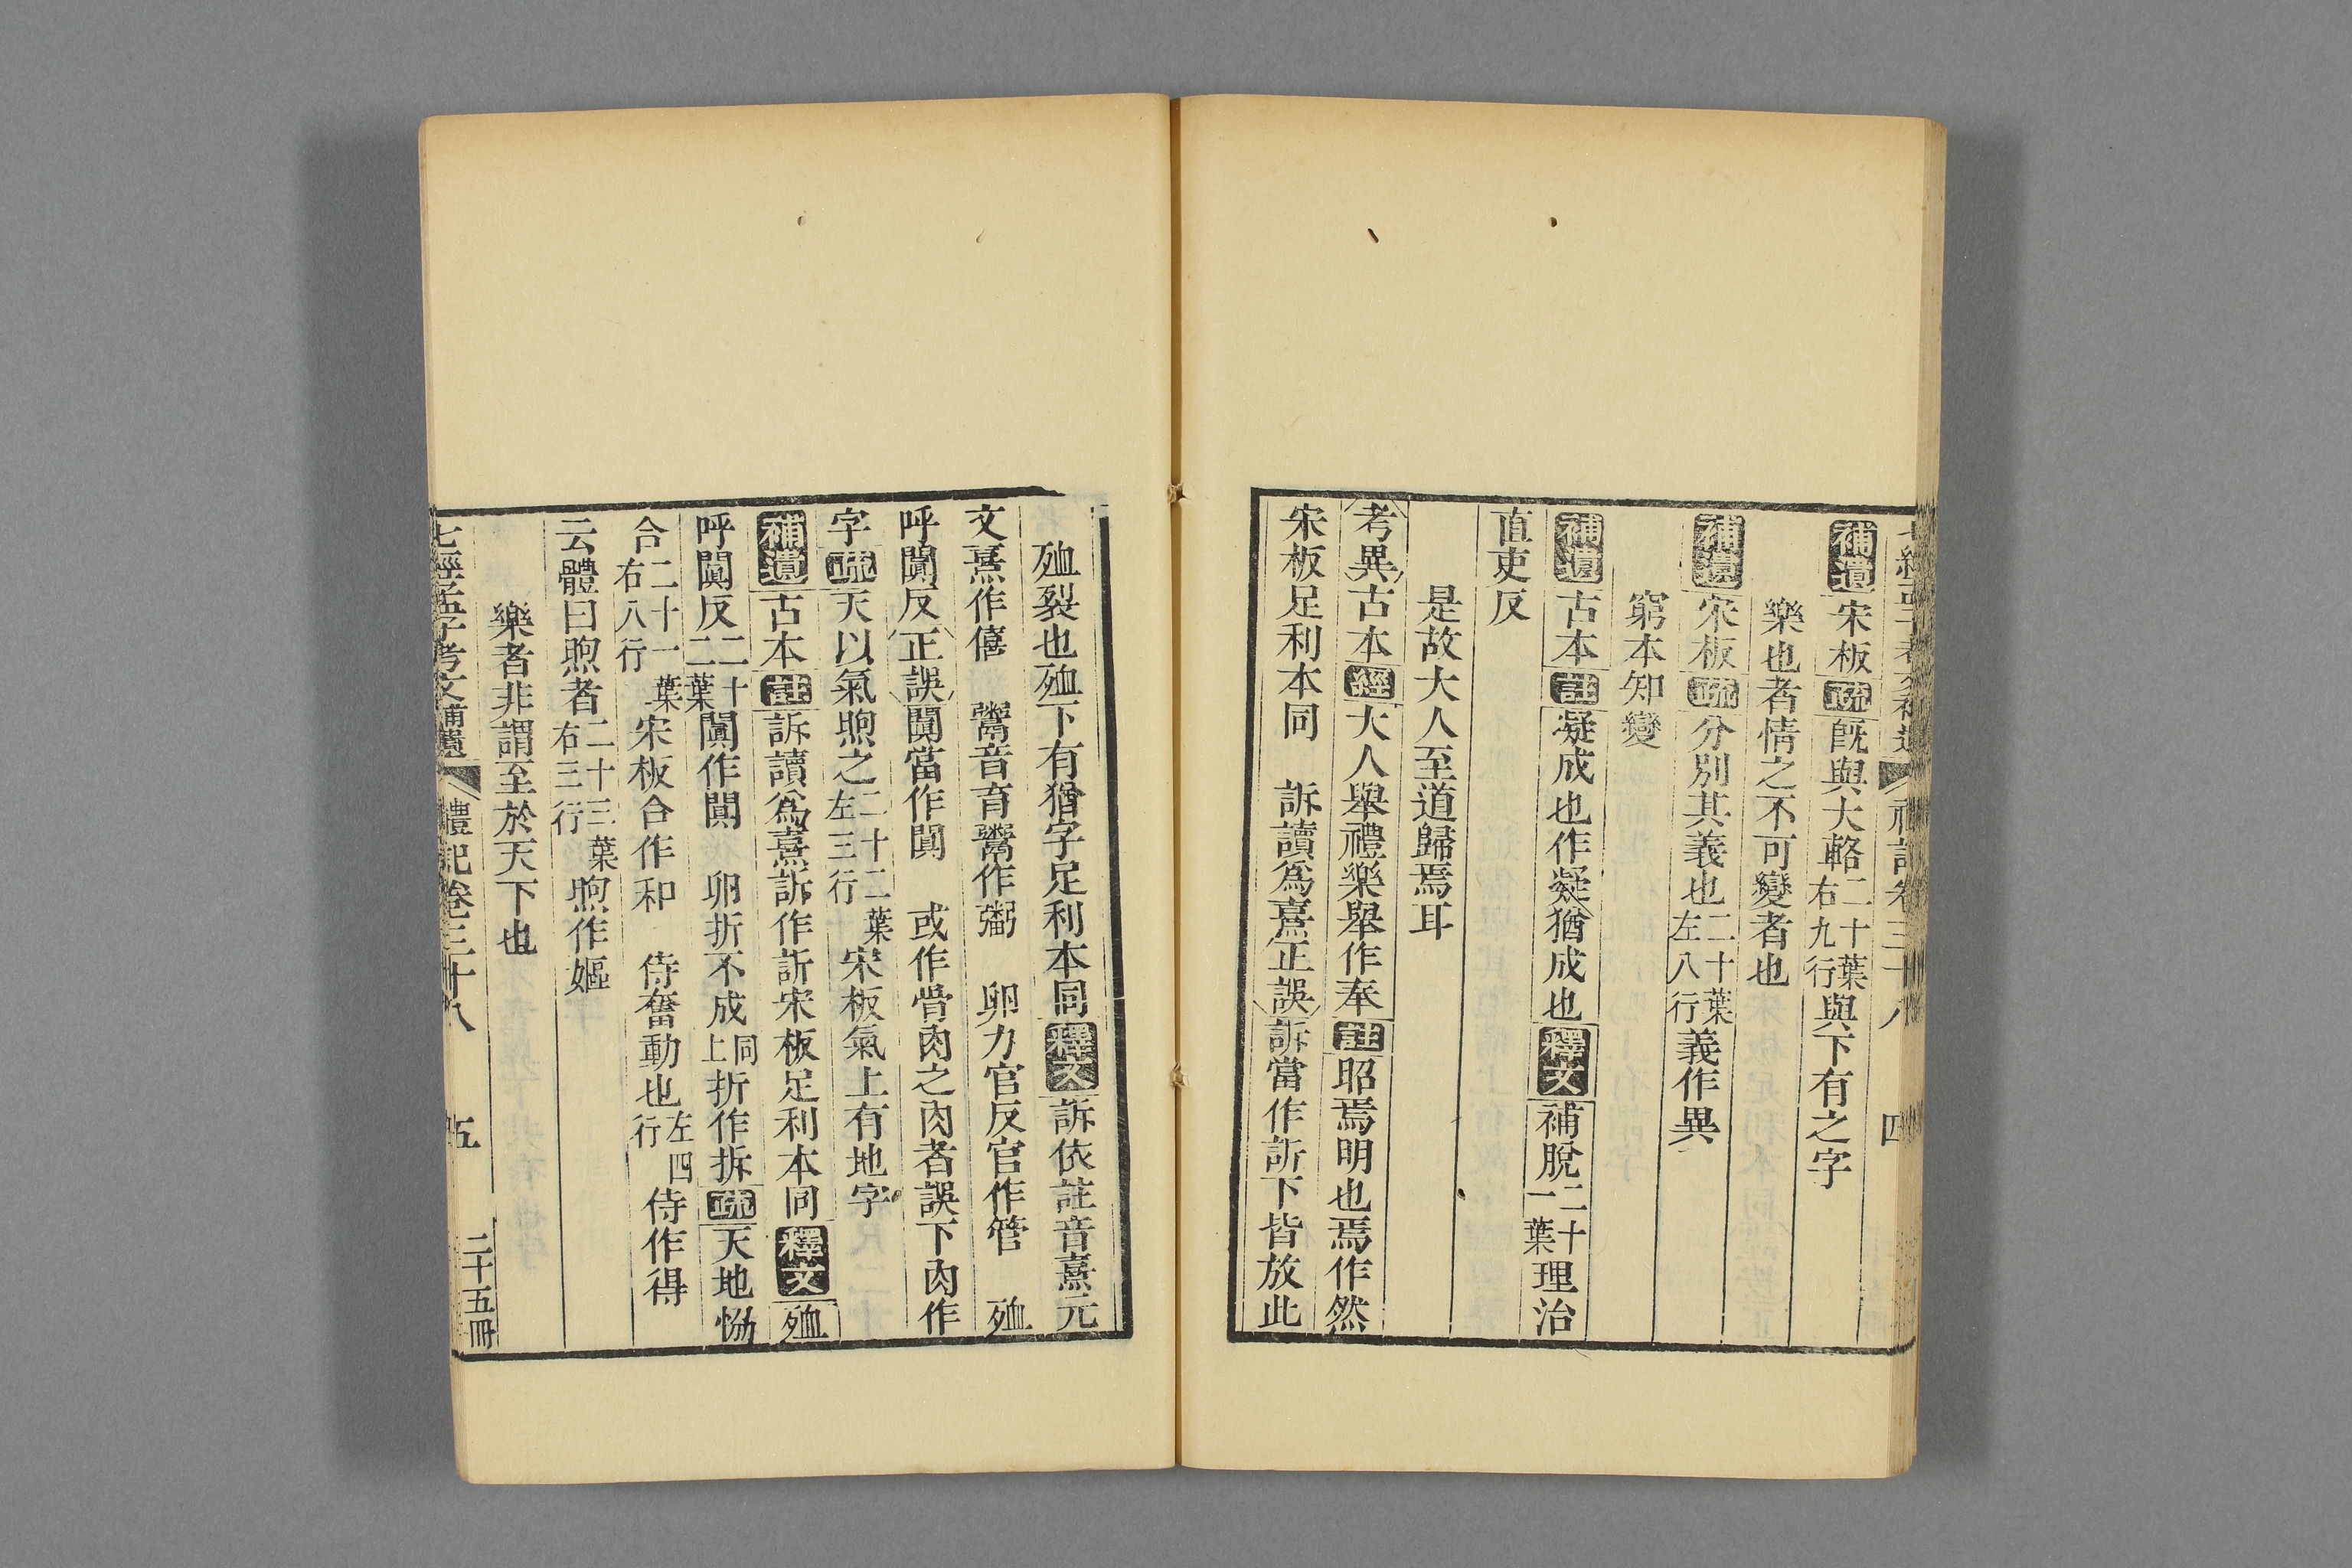 補遺宋板疏旣與大輅二十葉右九行與下有之字
樂也者情之不可變者也
補遺宋板疏分別其義也二十葉左八行義作異
窮本知變
補遺古本註凝成也作凝猶成也釋文補脫二十一葉理治
直吏反
是故大人至道歸焉耳
考異古本經大人舉禮樂舉作奉註昭焉明也焉作然
宋板足利本同 訴讀爲熹正誤訴當作訢下皆放此
殈裂也殈下有猶字足利本同釋文訴依註音熹元
文熹作僖 鬻音育鬻作粥 卵力官反官作管 殈
呼闃反正誤闃當作闃 或作骨肉之肉者誤下肉作
字疏天以氣煦之二十二葉左三行宋板氣上有地字
補遺古本註訴讀爲熹訴作訢宋板足利本同釋文殈
呼闃反二十二葉闃作闃 卵折不成同上折作拆疏天地㤼
合二十一葉右八行宋板合作和 侍奮動也左四行侍作得
云體曰煦者二十三葉右三行煦作嫗
樂者非謂至於天下也
七經孟子考文補遺 禮記卷三十八 五 二十五冊